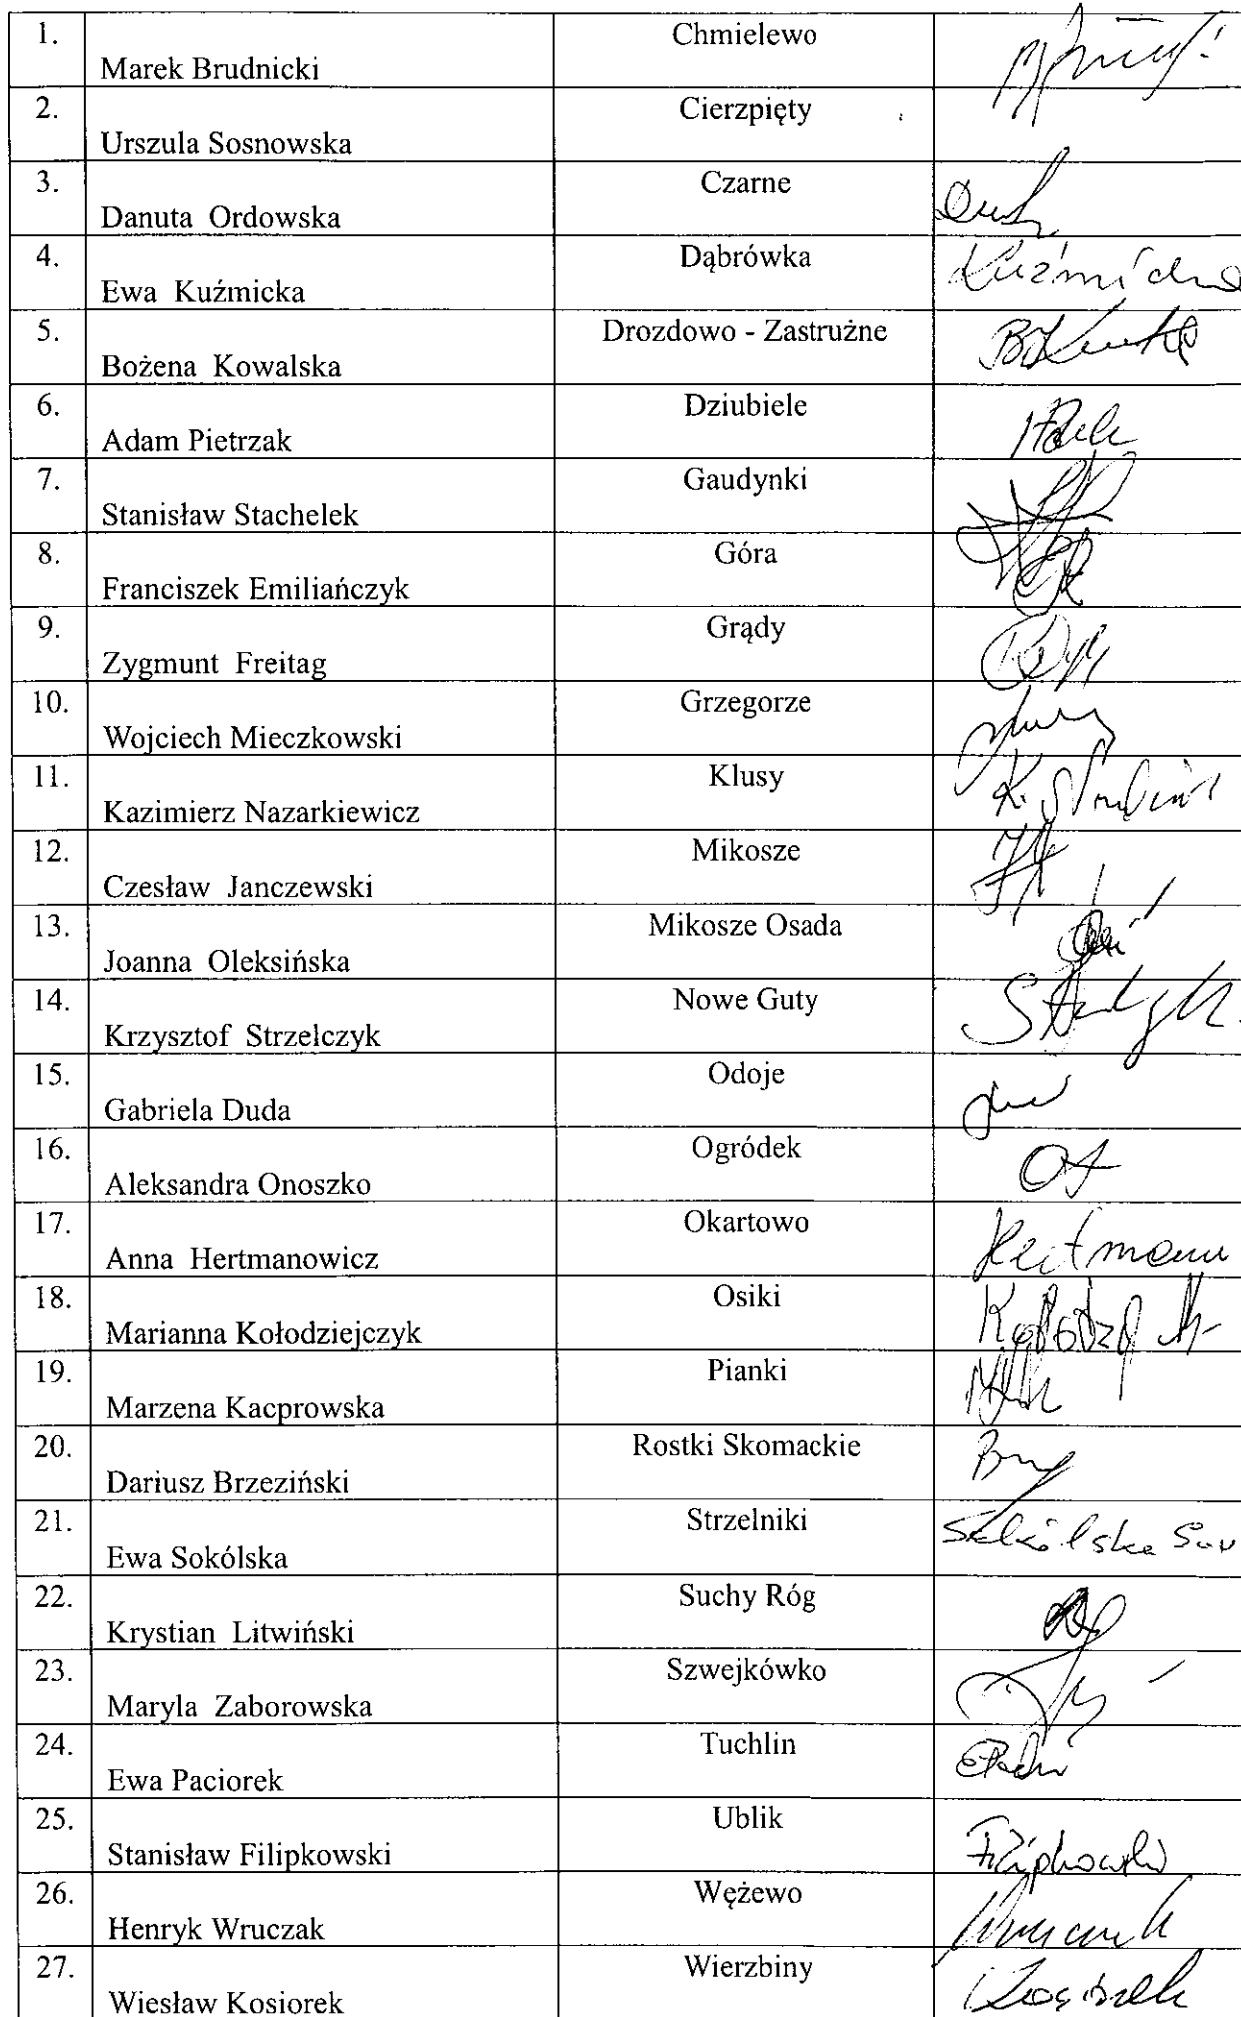 1. Marek Brudnicki Chmielewo
2. Urszula Sosnowska Cierzpięty
3. Danuta Ordowska Czarne
4. Ewa Kuźmicka Dąbrówka
5. Bożena Kowalska Drozdowo - Zastrużne
6. Adam Pietrzak Dziubiele
7. Stanisław Stachelek Gaudynki
8. Franciszek Emiliańczyk Góra
9. Zygmunt Freitag Grądy
10. Wojciech Mieczkowski Grzegorze
11. Kazimierz Nazarkiewicz Klusy
12. Czesław Janczewski Mikosze
13. Joanna Oleksińska Mikosze Osada
14. Krzysztof Strzelczyk Nowe Guty
15. Gabriela Duda Odoje
16. Aleksandra Onoszko Ogródek
17. Anna Hertmanowicz Okartowo
18. Marianna Kołodziejczyk Osiki
19. Marzena Kacprowska Pianki
20. Dariusz Brzeziński Rostki Skomackie
21. Ewa Sokólska Strzelniki
22. Krystian Litwiński Suchy Róg
23. Maryla Zaborowska Szwejkówko
24. Ewa Paciorek Tuchlin
25. Stanisław Filipkowski Ublik Filipkowski
26. Henryk Wruczak Wężewo
27. Wiesław Kosiorek Wierzbiny Kosiorek